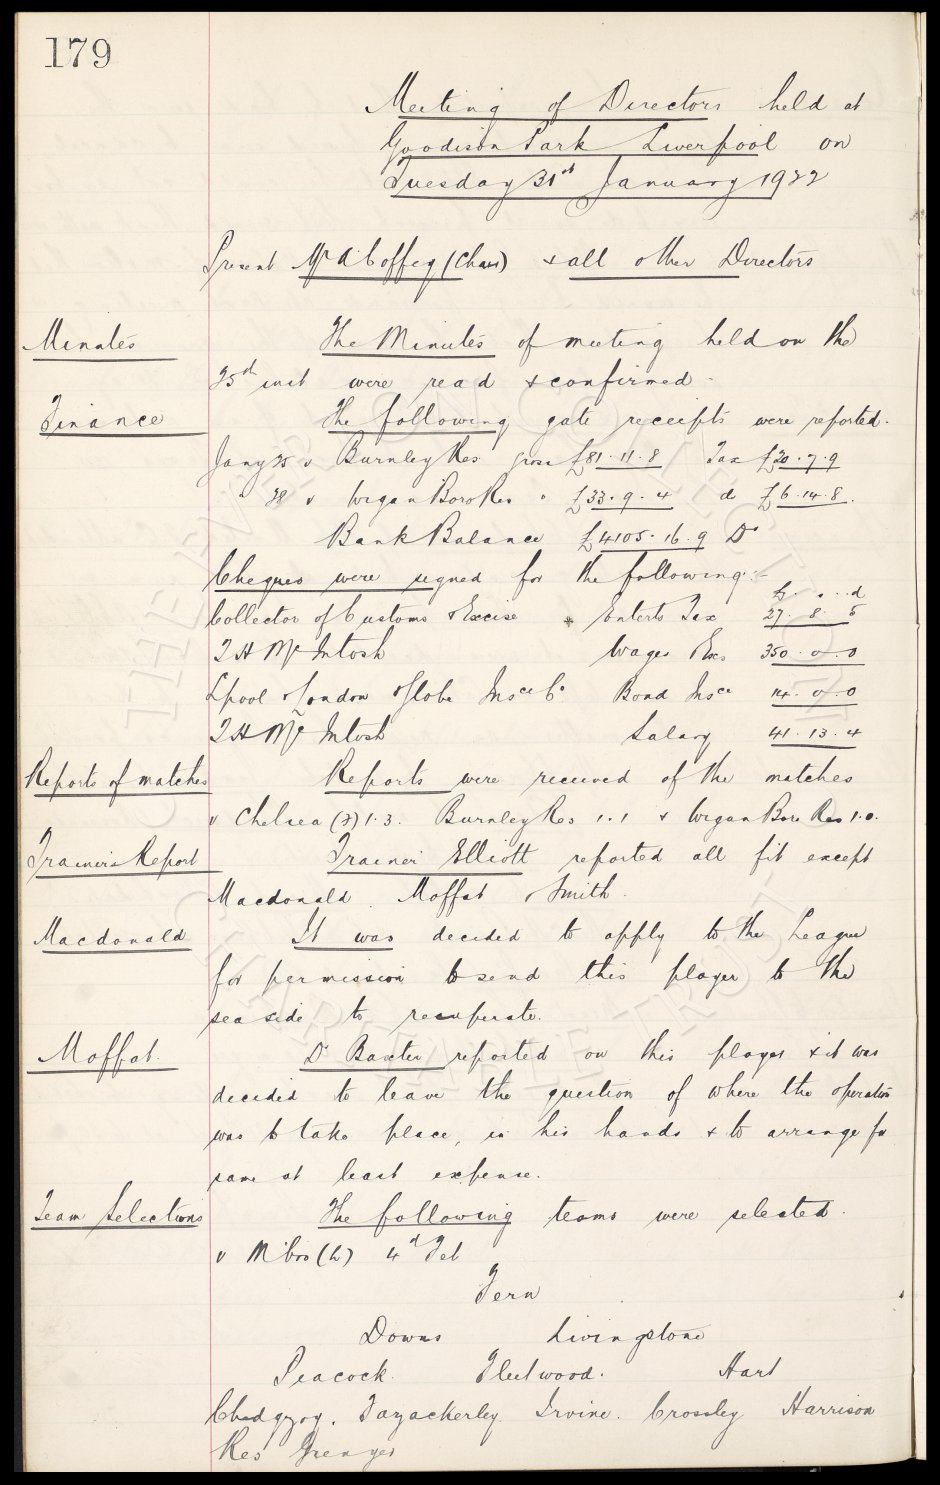 179
Meeting of Directors held at
Goodison Park Liverpool on
Tuesday 31st January 1922
Present Mr A Coffey (Chair) & all other Directors
Minutes
The Minutes of meeting held on the
25th inst were read & confirmed -
Finance
The following gate receipts were reported.
Jany 25 v Burnley Res gross £81.11.8 Tax £20.7.9
" 28 v Wigan Boro Res " £33.9.4 do £6.14.8.
Bank Balance £4105.16.9 Dr
Cheques were signed for the following:-
£ s d
Collector of Customs & Excise Enterts Tax 27.8.5
T H McIntosh Wages & Exs 350.0.0
Lpool & London & Globe Insce Co Bond Insce 14.0.0
T H McIntosh Salary 41.13.4
Reports of matches
Reports were received of the matches
v Chelsea (2) 1.3. Burnley Res 1.1 & Wigan Boro Res 1.0.
Trainers Report
Trainer Elliott reported all fit except
Macdonald. Moffat & Smith.
Macdonald
It was decided to apply to the League
for permission to send this player to the
sea side to recuperate.
Moffat.
Dr Baxter reported on this player & it was
decided to leave the question of where the operation
was to take place, in his hands & to arrange for
same at least expense.
Team Selections
The following teams were selected.
v M'bro (h) 4th Feb
Fern
Downs Livingstone
Peacock. Fleetwood. Hart
Chedgzoy. Fazackerley. Irvine. Crossley Harrison
Res Grenyer